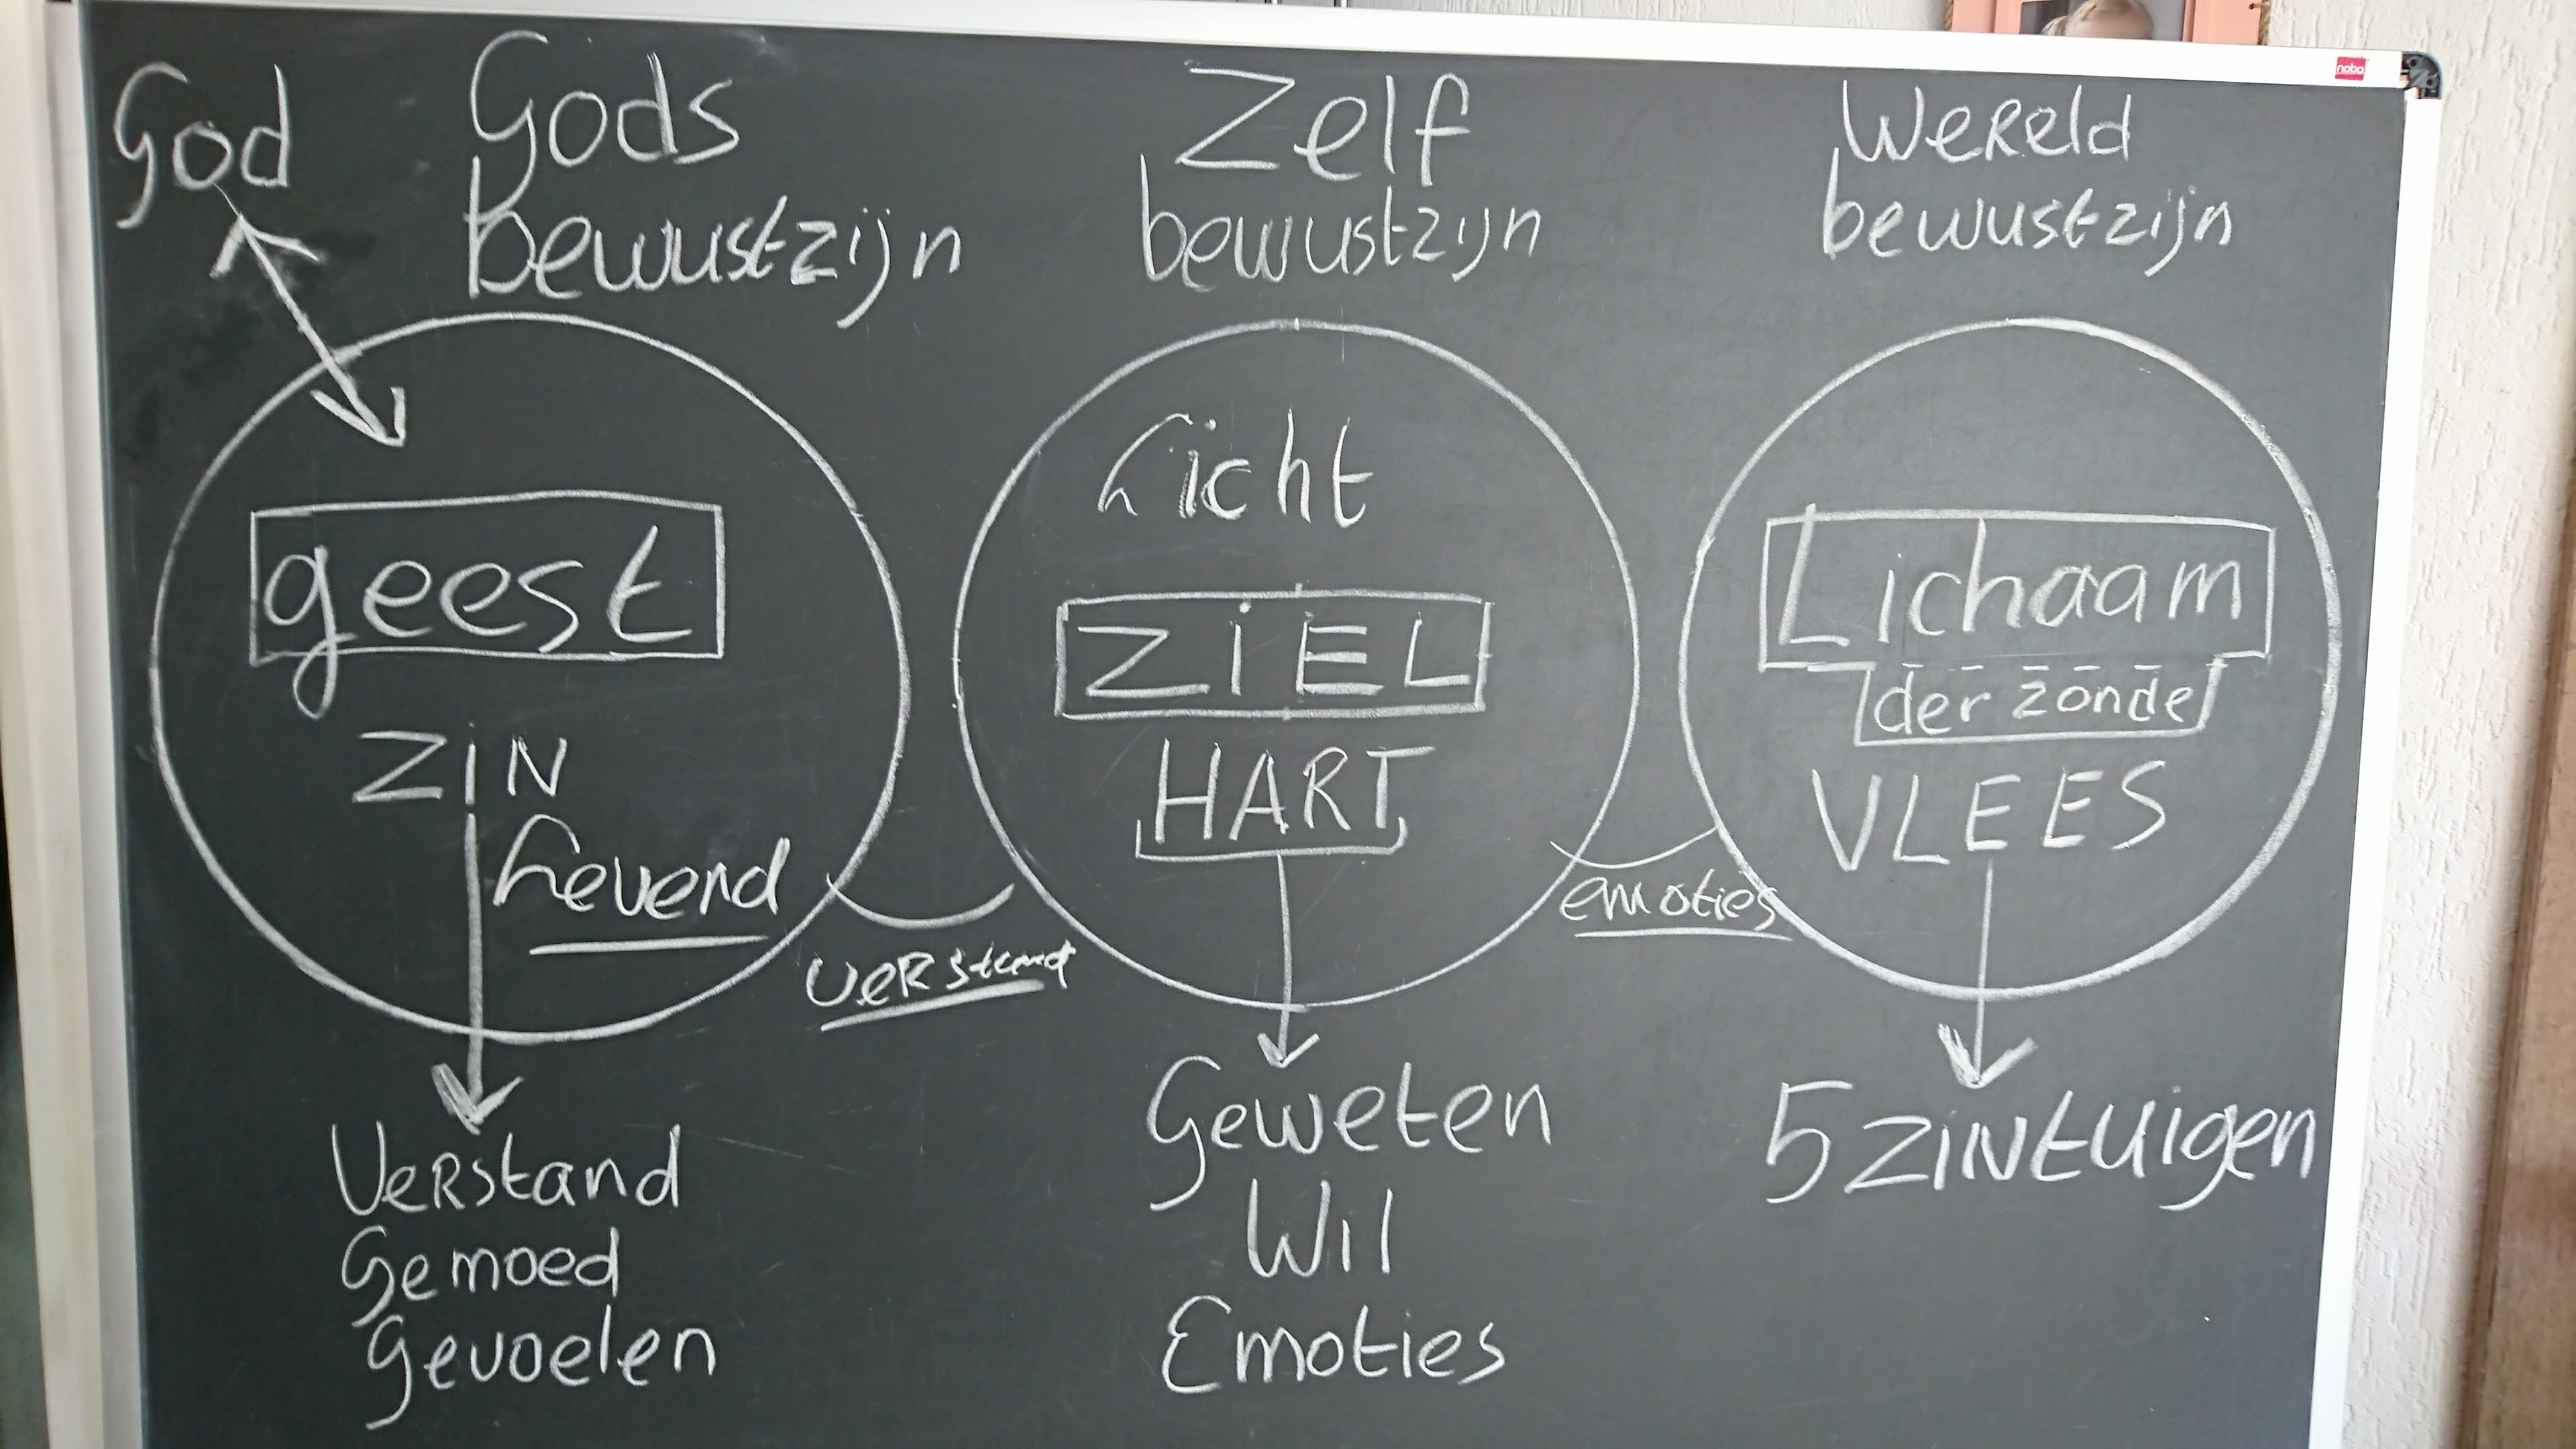 God
Gods
bewustzijn
geest
ZiN
Levend
Verstand
Gemoed
Gevoelen
verstand
Zelf
bewustzijn
Licht
ZiEL
HART
Geweten
Wil
Emoties
emoties
Wereld
bewustzijn
Lichaam
der zonde
VLEES
5 ZiNtuigen
nobo